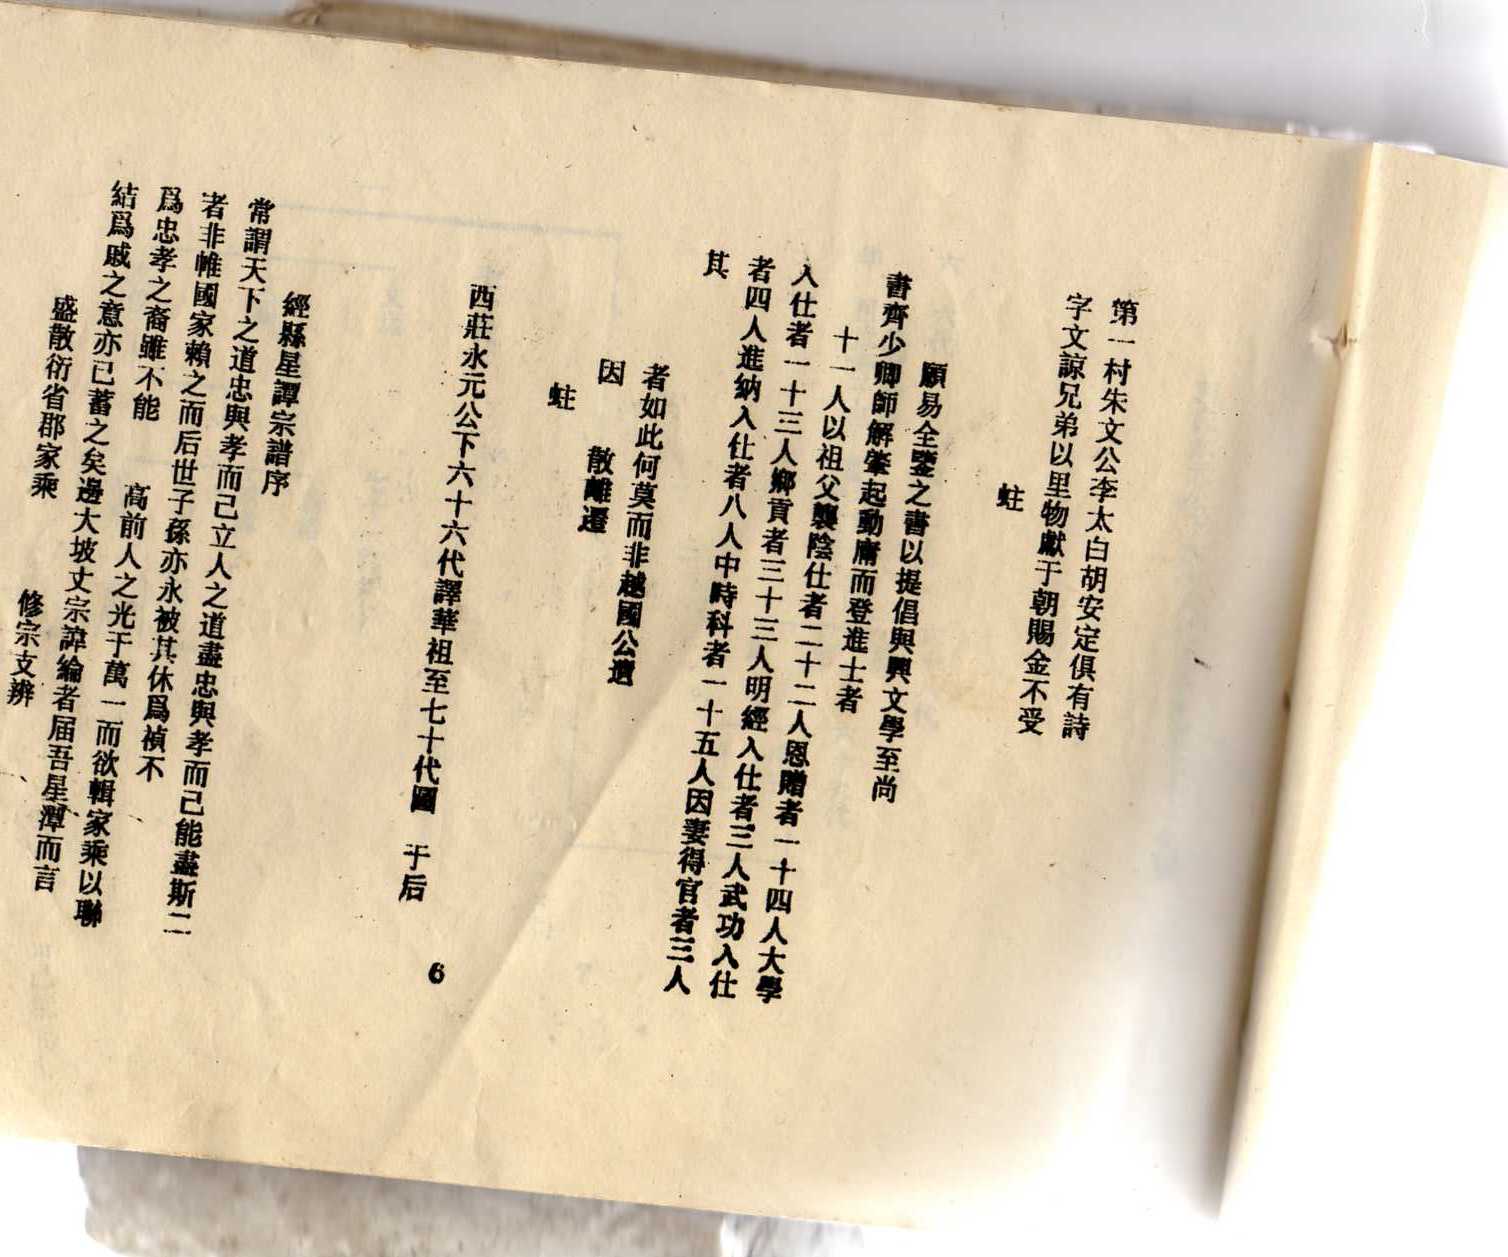 第一村朱文公李太白胡安定俱有詩
字文諒兄弟以里物獻于朝賜金不受
蛀
願易全鑒之書以提倡與興文學至尚
書齊少卿師解肇起動庸而登進士者
十一人以祖父襲陰仕者二十二人恩贈者一十四人大學
入仕者一十三人鄉貢者三十三人明經入仕者三人武功入仕
者四人進納入仕者八人中時科者一十五人因妻得官者三人
其
者如此何莫而非越國公遺
因 散離遷
蛀
西莊永元公下六十六代譯華祖至七十代圖 于后
6
經縣星譚宗譜序
常謂天下之道忠與孝而己立人之道盡忠與孝而己能盡斯二
者非帷國家賴之而后世子孫亦永被其休爲禎不
爲忠孝之裔雖不能 高前人之光于萬一而欲輯家乘以聯
結爲戚之意亦已蓄之矣邊大坡丈宗諱綸者届吾星潭而言
盛散衍省郡家乘 修宗支辨